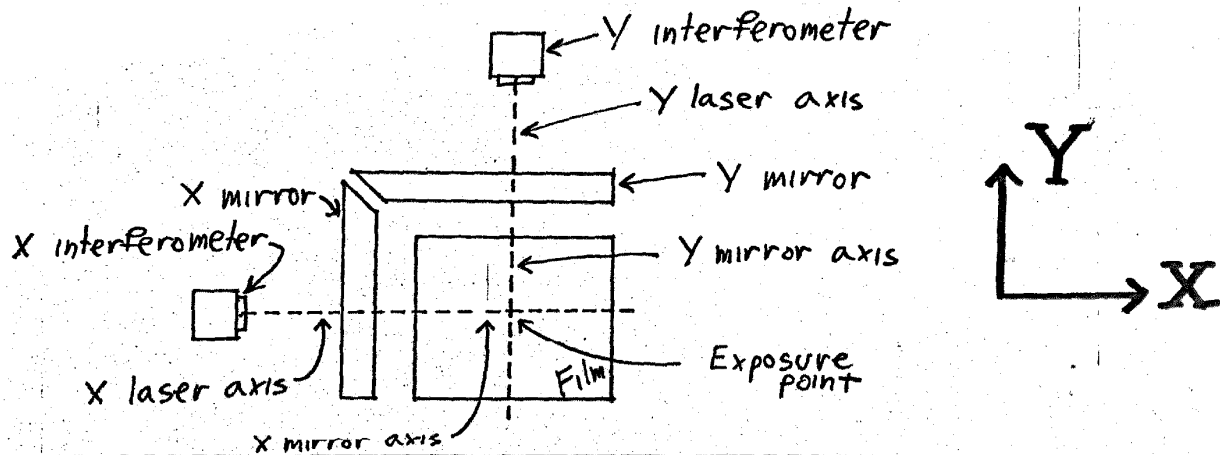 Y interferometer
Y laser axis
Y mirror
X mirror
X interferometer
Y mirror axis
Exposure
point
Film
X laser axis
X mirror axis
Y
X